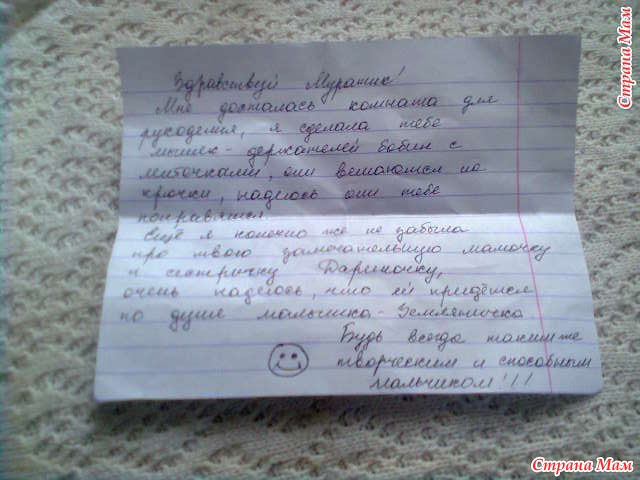 Здравствуй Муратик!
Мне досталась комната для
рукоделия, я сделала тебе
мышек - держателей бобин с
ленточками, они вешаются на
крючки, надеюсь они тебе
понравятся.
Ещё я конечно же не забыла
про твою замечательную мамочку
и сестричку Дариночку,
очень надеюсь, что ей придётся
по душе малышка - Земляничка
Будь всегда таким же
творческим и способным
мальчиком!!!
Страна Мам
Страна Мам